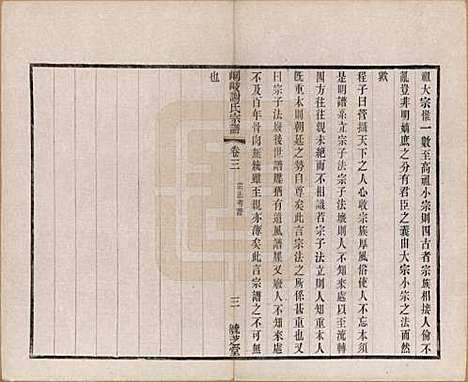 祖大宗惟一數至高祖小宗則四古者宗族相接人倫不
亂豈非明嫡庶之分有君臣之義由大宗小宗之法而然
歟
程子曰管攝天下人心收宗族厚風俗使人不忘本須
是明譜系立宗子法宗子法壞則人不知來處以至流轉
四方往往親未絕而不相識若宗子法立則人知尊祖重本人
既重本則朝廷之勢自尊矣此言宗法之所係甚重也又
曰宗子法廢後世譜牒猶有遺風譜牒又廢人家不知來處
不及百年骨肉無統雖至親亦薄矣此言宗譜之不可無
也
峒岐謝氏宗譜
卷三
宗法考證
三